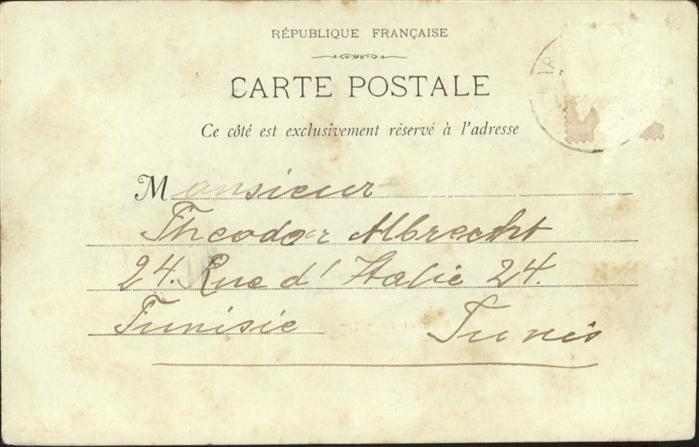 RÉPUBLIQUE FRANÇAISE
CARTE POSTALE
Ce côté est exclusivement réservé à l'adresse
Monsieur
Theodor Albrecht
24. Rue d'Italie 24.
Tunisie Tunis